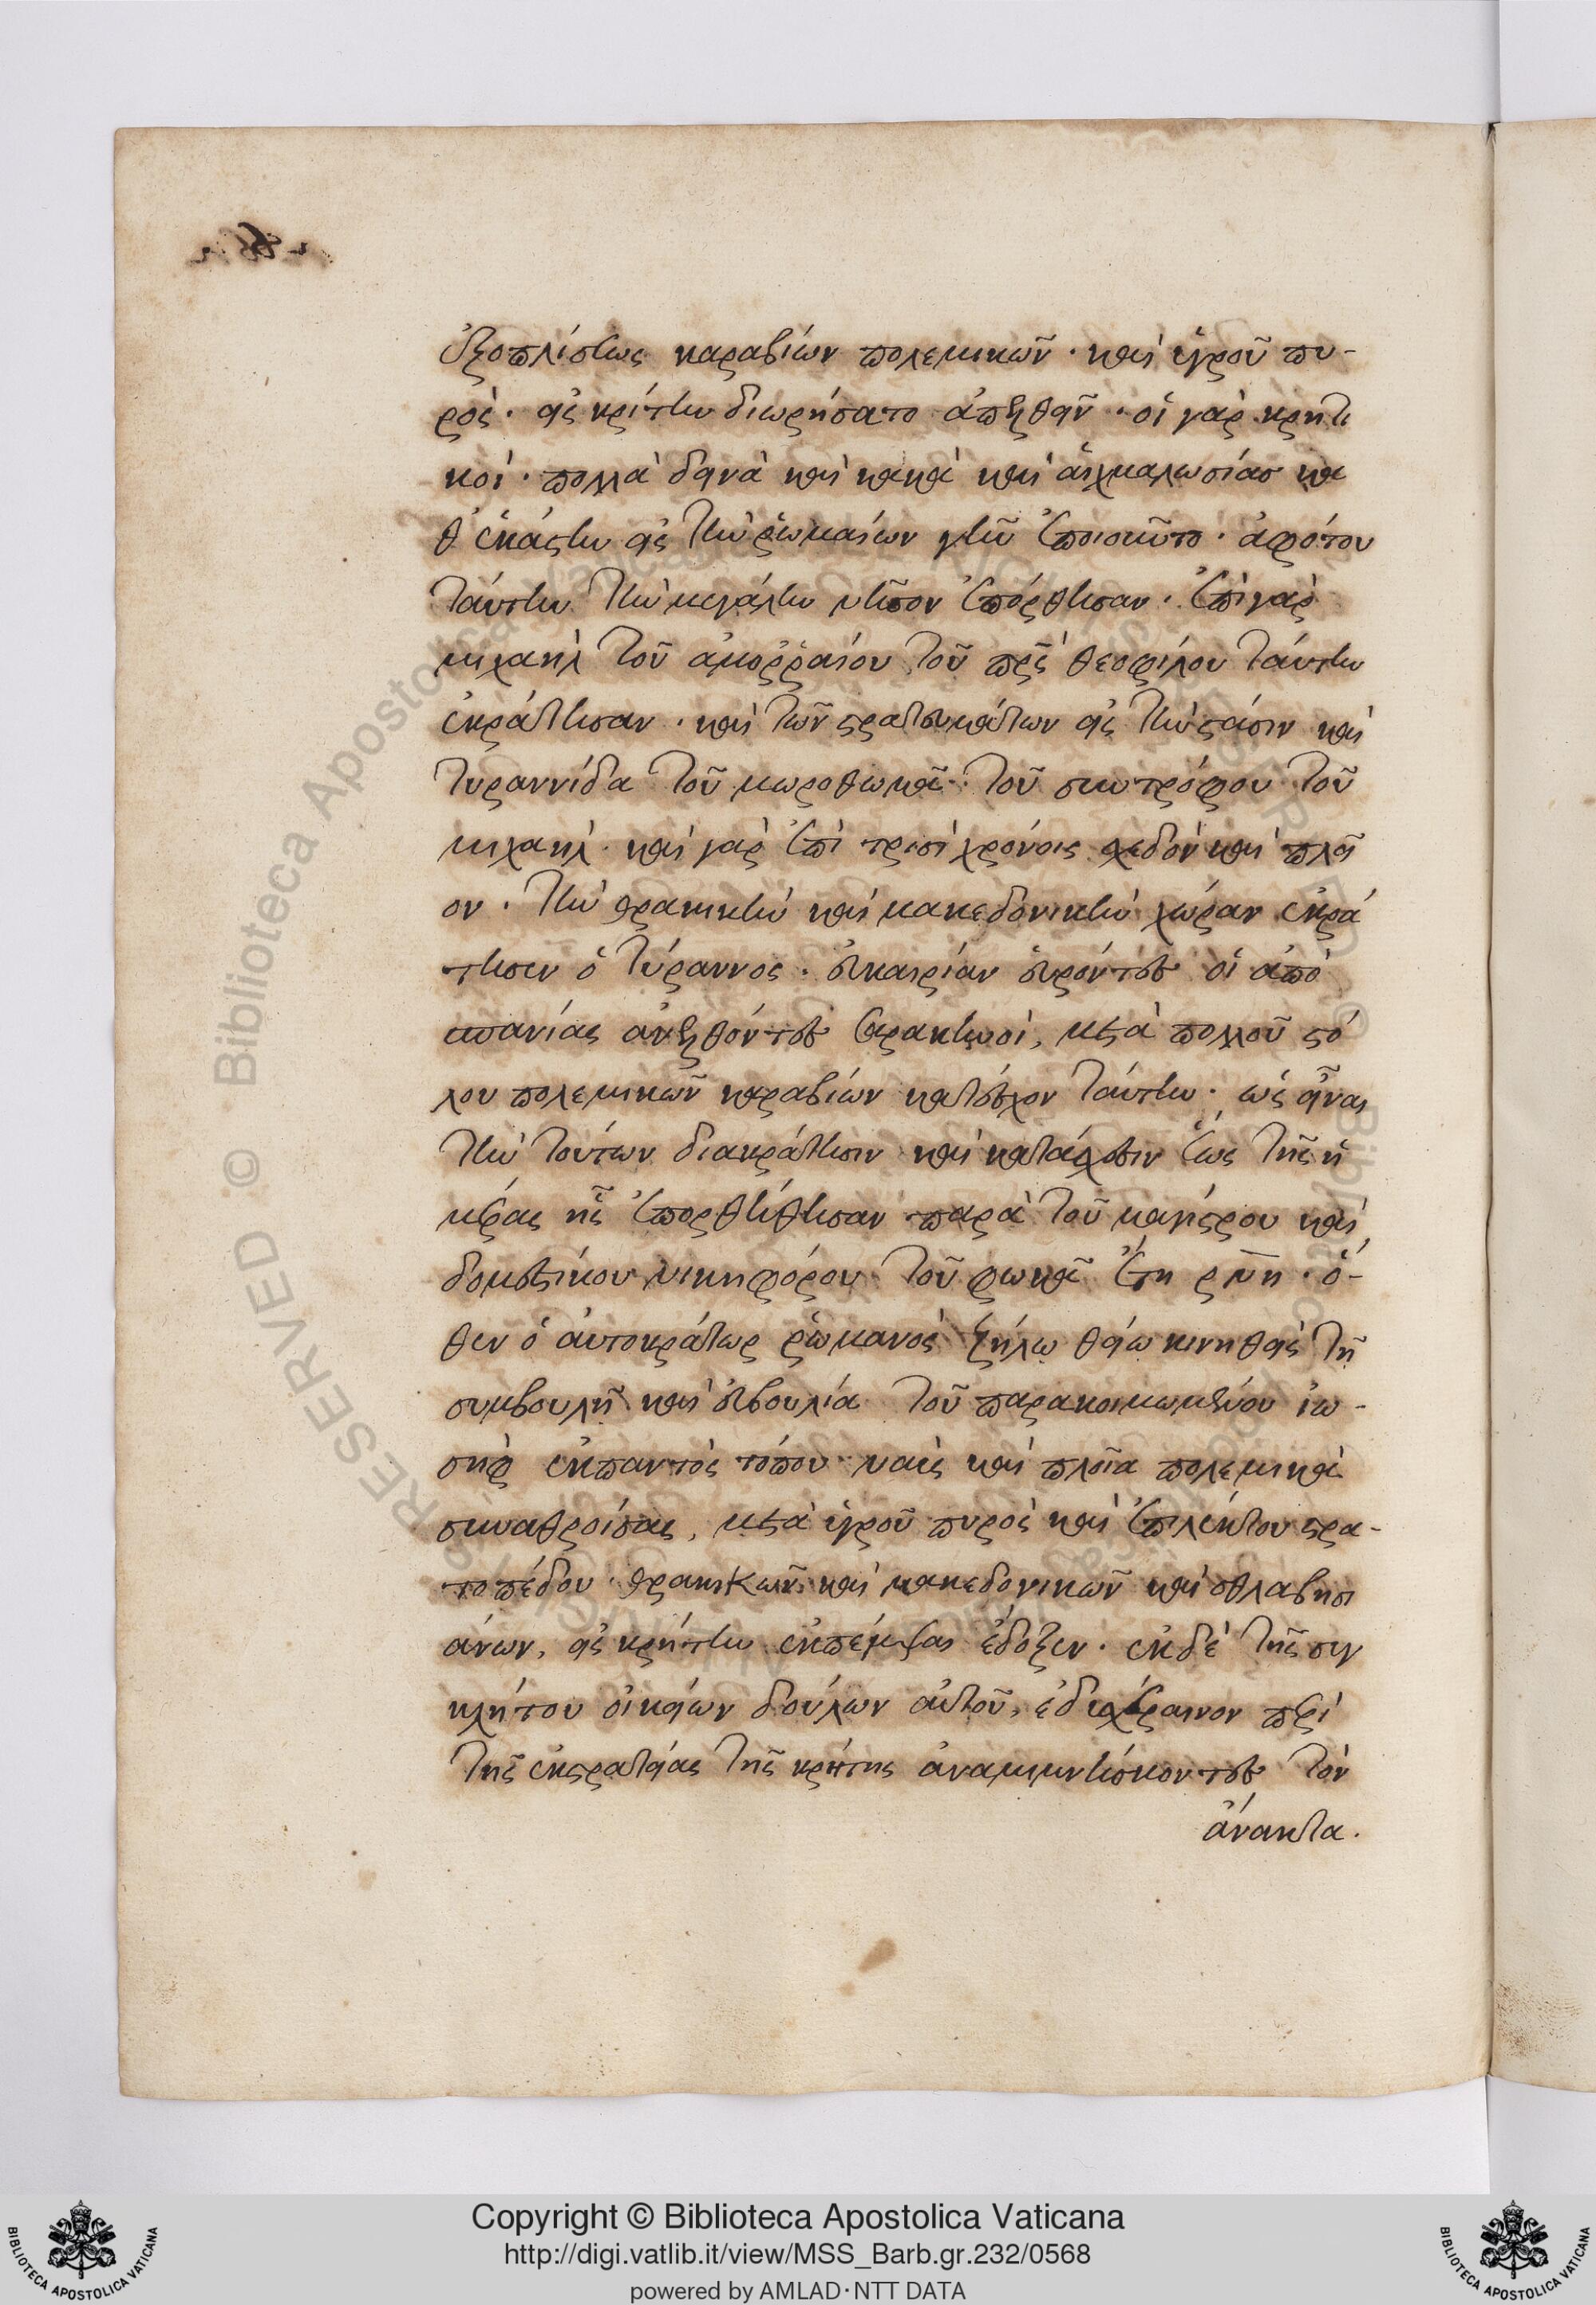 ἐξοπλίσεως καραβίων πολεμικῶν · καὶ ὑγροῦ πυ-
ρὸς · εἰς κρίτην διωρήσατο ἀπελθεῖν · οἱ γὰρ κρητι
κοὶ · πολλὰ δεινὰ καὶ κακὰ καὶ αἰχμαλωσίας κα
θ' ἑκάστην εἰς τὴν ῥωμαίων γῆν ἐποιοῦντο · ἀφότου
ταύτην τὴν μεγάλην νῆσον ἐπόρθησαν · ἐπὶ γὰρ
μιχαὴλ τοῦ ἀμορῤαίου τοῦ πρς θεοφίλου ταύτην
ἐκράτησαν · καὶ τῶν στρατευμάτων εἰς τὴν στάσιν καὶ
τυραννίδα τοῦ μωροθωμᾶ · τοῦ συντρόφου τοῦ
μιχαὴλ · καὶ γὰρ ἐπὶ τρισὶ χρόνοις σχεδὸν καὶ πλεῖ
ον · τὴν θρακικὴν καὶ μακεδονικὴν χώραν ἐκρά
τησεν ὁ τύραννος · εὐκαιρίαν εὑρόντες οἱ ἀπὸ
σπανίας ἀνελθόντες σαρακηνοὶ, μετὰ πολλοῦ στό
λου πολεμικῶν καραβίων κατέσχον ταύτην · ὡς εἶναι
τὴν τούτων διακράτησιν καὶ κατάσχεσιν ἕως τῆς ἡ
μέρας ἧς ἐπορθήθησαν παρὰ τοῦ μαγίστρου καὶ
δομεστίκου νικηφόρου τοῦ φωκᾶ ἔτη ρνη · ὅ-
θεν ὁ αὐτοκράτωρ ῥωμανὸς ζήλω θείω κινηθεὶς τῆ
συμβουλῆ καὶ εὐβουλία τοῦ παρακοιμωμένου ἰω-
σὴφ ἐκπαντὸς τόπου ναῦς καὶ πλοῖα πολεμικὰ
συναθροίσας, μετὰ ὑγροῦ πυρὸς καὶ ἐπιλέκτου στρα-
τοπέδου · θρακικῶν καὶ μακεδονικῶν καὶ σθλαβησι
άνων, εἰς κρήτην ἐκπέμψαι ἔδοξεν · ἐκ δὲ τῆς συγ
κλήτου οἰκείων δούλων αὐτοῦ, ἐδυσχέραινον περὶ
τῆς ἐκστρατείας τῆς κρήτης ἀναμιμνήσκοντες τὸν
ἄνακτα.
Copyright © Biblioteca Apostolica Vaticana
http://digi.vatlib.it/view/MSS_Barb.gr.232/0568
powered by AMLAD·NTT DATA